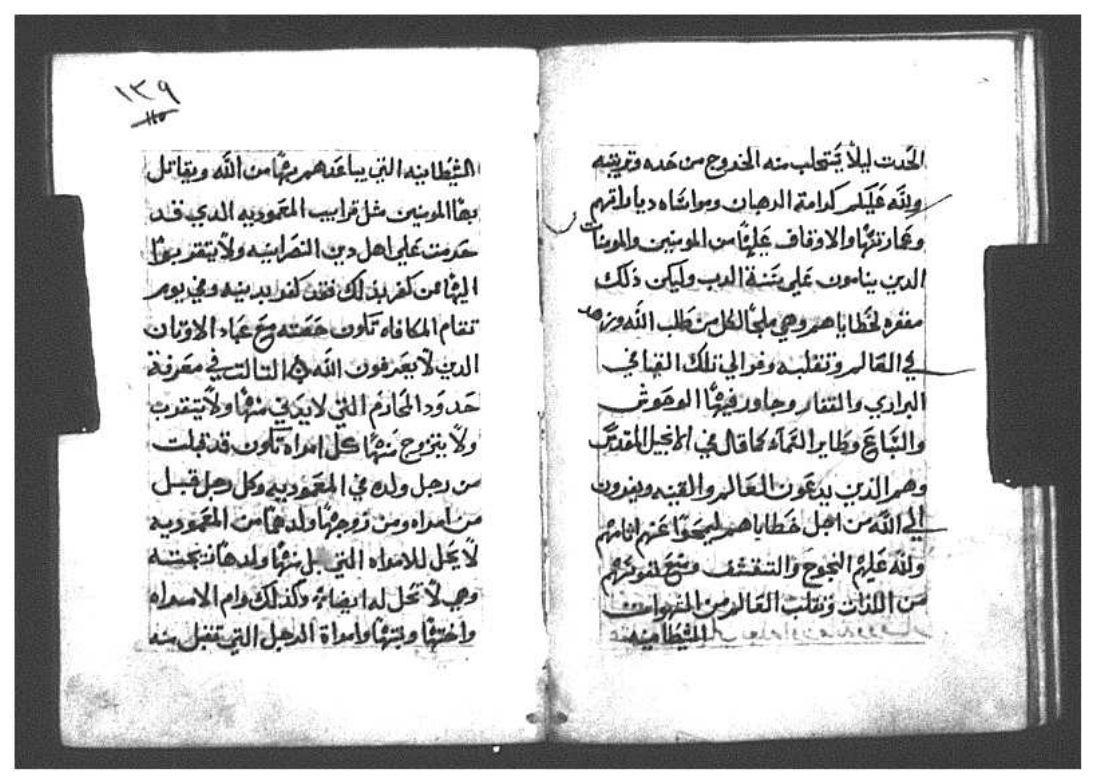 الحدت ليلا يستحلب منه الخروج من حده وترتيبه
وانه عليكم كرامة الرهبان ومواساه دياراتهم
وعمارتها والاوقاف عليها من المومنين والمومنات
الدين ينامون على بتنة الدب وليكن ذلك
مغفره لخطاياهم وهي ملجا لكل من طلب الله وزهد
في العالم وتقلبه وفر الي تلك الفيافي
البراري والقفار وجاور فيها الوحوش
والسباع وطاير السماء كما قال في الانجيل المقدس
وهم الدين يدعون العالم والقنيه ويفرون
الي الله من اجل خطاياهم ليمحوا عنهم اتامهم
وانه عليهم النجوح والتقشف ومنع نفوسهم
من اللذات وتقلب العالم من الشهوات
الشيطانيه
١٣٩
الشيطانيه التي يباعدهم بها من الله ويقاتل
بها المومنين مثل قرابيب المعموديه الدي قد
حرمت علي اهل دين النصرانيه ولا يتقربوا
اليها من كفر بذلك فقد كفر بدينيه وفي يوم
تقام المكافاه تكون حصته مع عباد الاوتان
الدين لا يعرفون الله التالت في معرفة
حدود المحارم التي لا يدني منها ولا يتقرب
ولا يتزوج منها كل امراه تكون قد قبلت
من رجل ولده في المعموديه وكل رجل قبل
من امراه ومن زوجها ولدهما من المعموديه
لا يحل للامراه التي بل منها ولدها زيجته
وهي لا تحل له ايضا وكذلك وام الامراه
واختها وبنتها وامراة الرجل التي تقبل منه